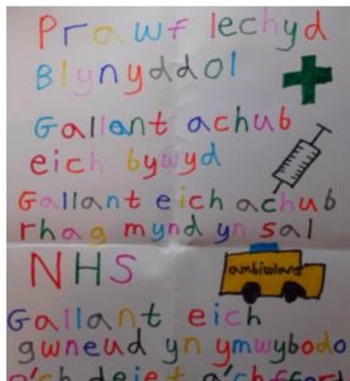 Prawf Iechyd
Blynyddol
Gallant achub
eich bywyd
Gallant eich achub
rhag mynd yn sal
NHS
ambiwlans
Gallant eich
gwneud yn ymwybodo
a'ch deiet a'ch